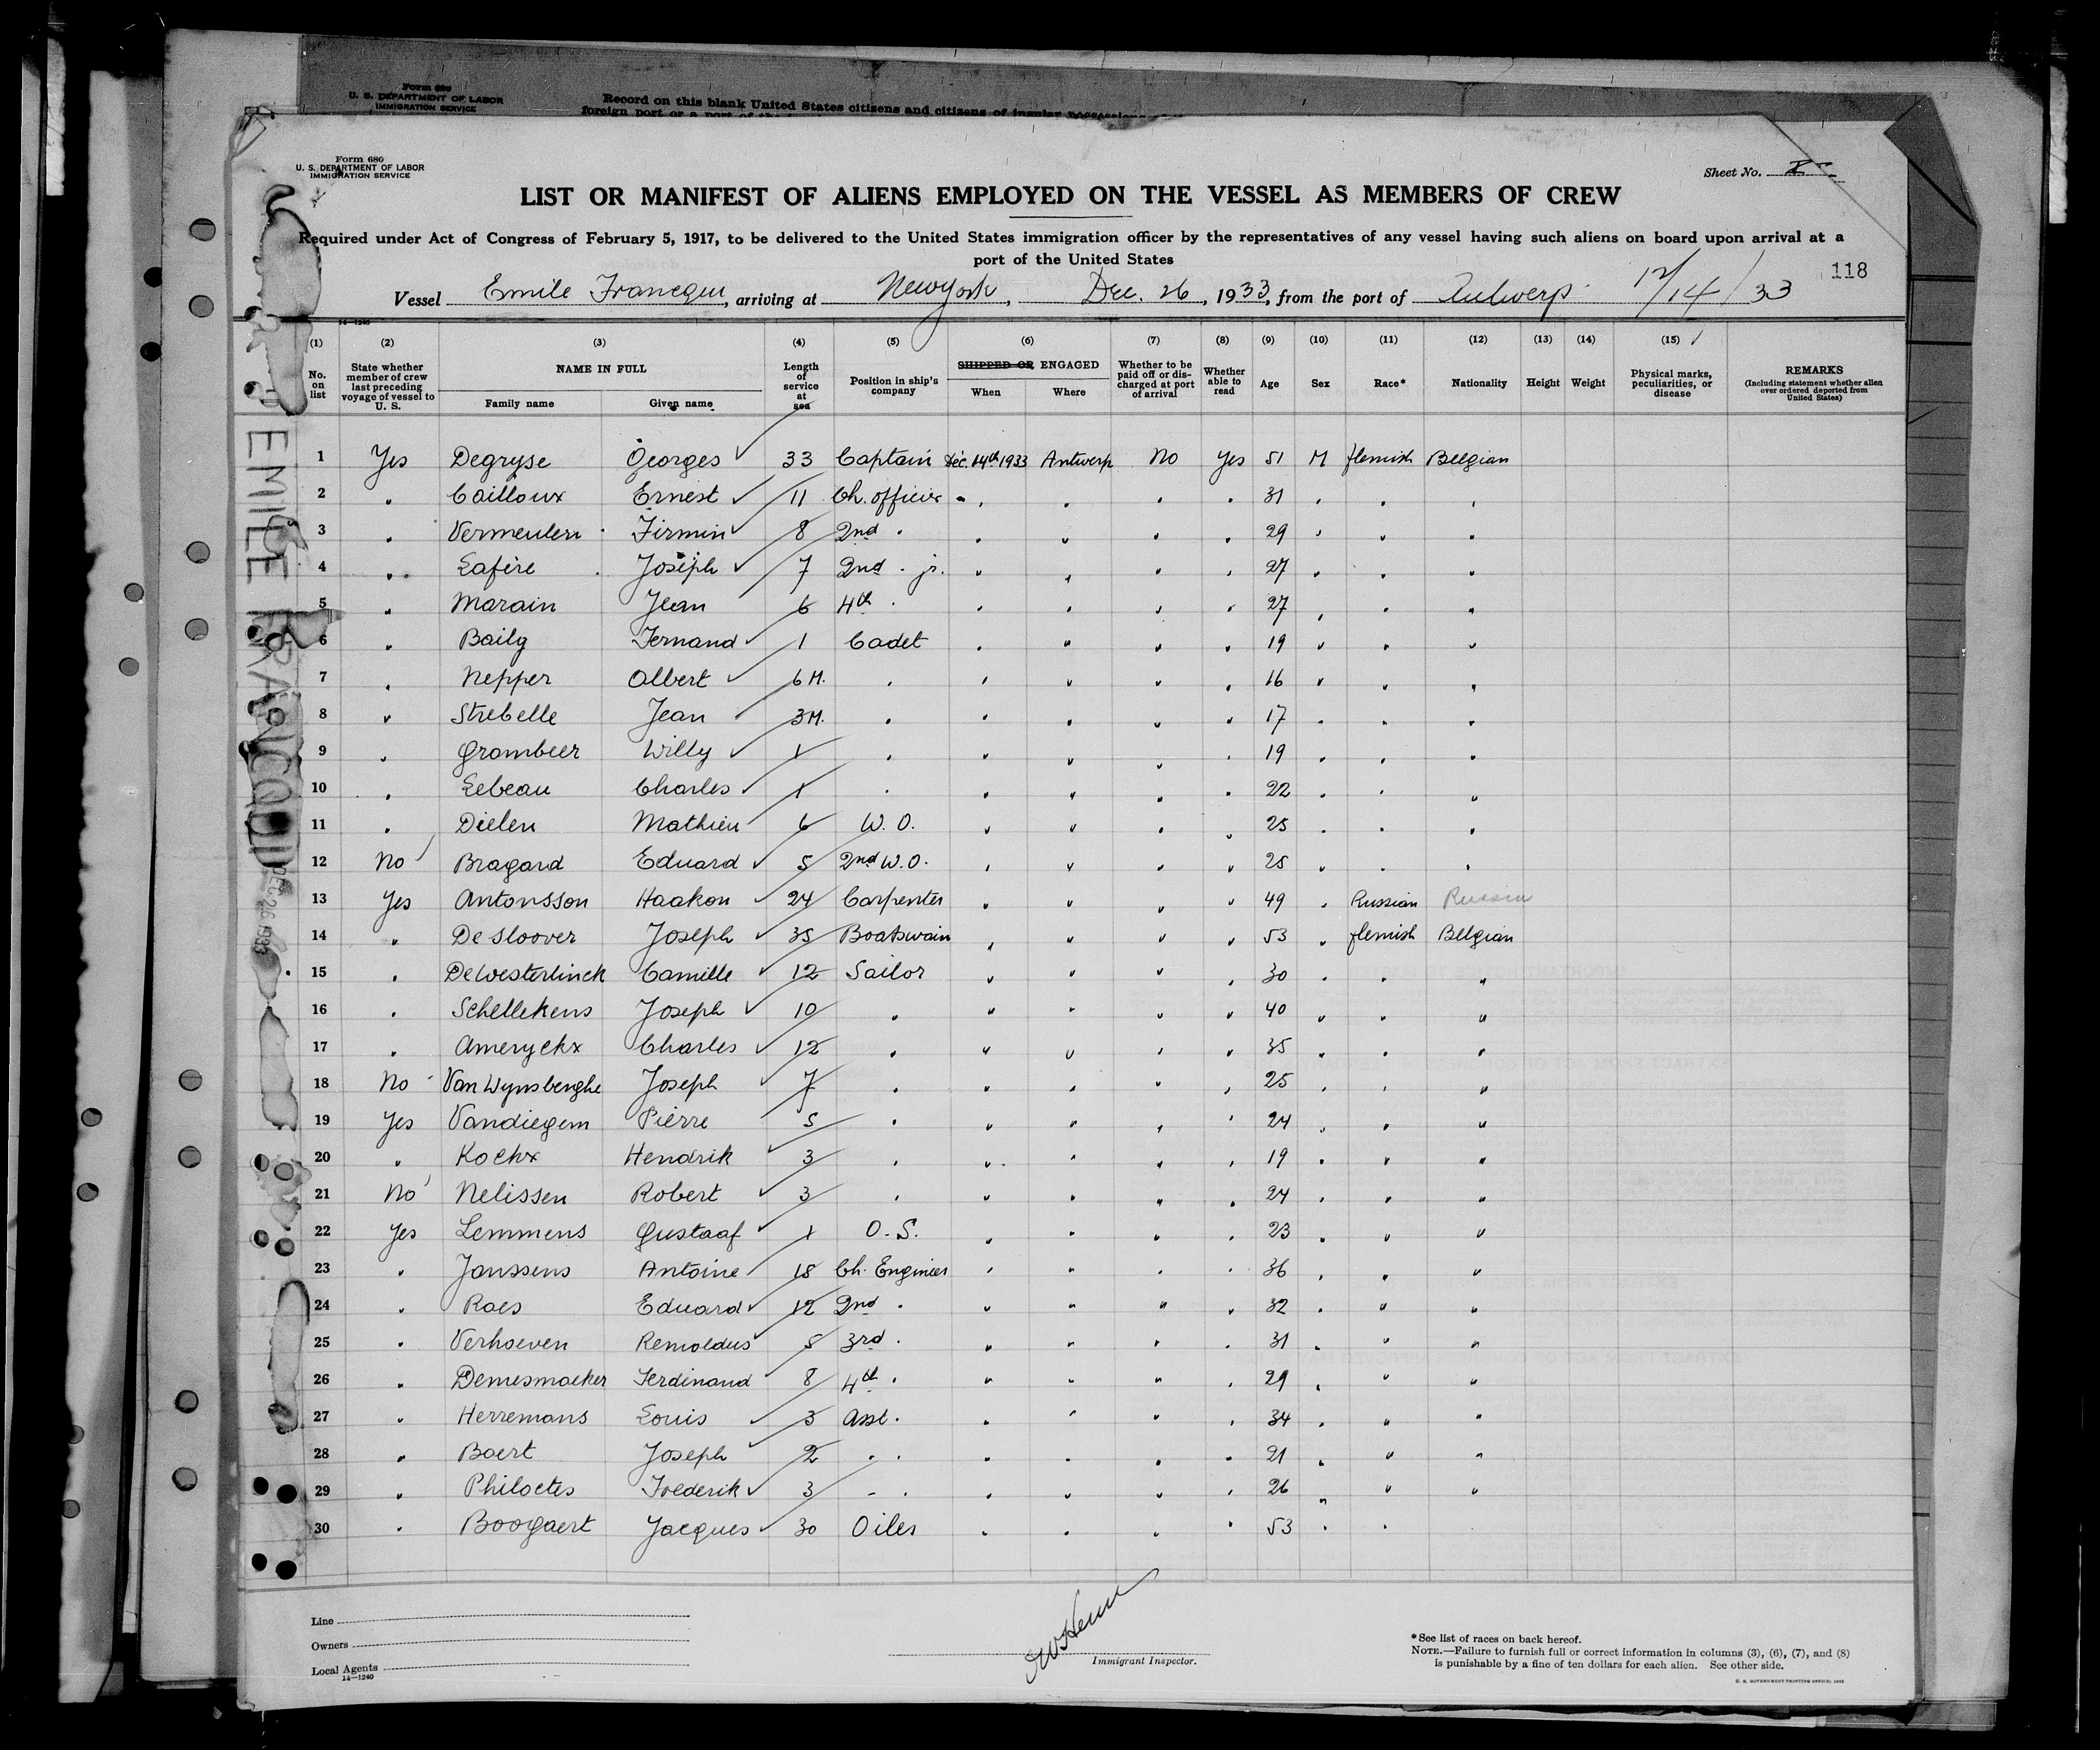 Form 680
U. S. DEPARTMENT OF LABOR
IMMIGRATION SERVICE
Record on this blank United States citizens and citizens of insular possessions
foreign port or a port of the
Form 680
U. S. DEPARTMENT OF LABOR
IMMIGRATION SERVICE
Sheet No. I
LIST OR MANIFEST OF ALIENS EMPLOYED ON THE VESSEL AS MEMBERS OF CREW
Required under Act of Congress of February 5, 1917, to be delivered to the United States immigration officer by the representatives of any vessel having such aliens on board upon arrival at a
port of the United States
118
Vessel Emile Francqui, arriving at New York, Dec. 26, 1933, from the port of Antwerp 12/14/33
14—1240
(1) (2) (3) (4) (5) (6) (7) (8) (9) (10) (11) (12) (13) (14) (15)
No. on list State whether member of crew last preceding voyage of vessel to U. S. NAME IN FULL Family name Given name Length of service at sea Position in ship's company SHIPPED OR ENGAGED When Where Whether to be paid off or discharged at port of arrival Whether able to read Age Sex Race* Nationality Height Weight Physical marks, peculiarities, or disease REMARKS (Including statement whether alien ever ordered deported from United States)
1 Yes Degryse Georges 33 Captain Dec. 14th 1933 Antwerp No Yes 51 M flemish Belgian
2 " Cailloux Ernest 11 Ch. officer " " " " 31 " " "
3 " Vermeulen Firmin 8 2nd " " " " " 29 " " "
4 " Lafère Joseph 7 2nd " jr. " " " " 27 " " "
5 " Marain Jean 6 4th " " " " " 27 " " "
6 " Baily Fernand 1 Cadet " " " " 19 " " "
7 " Nepper Albert 6 M. " " " " " 16 " " "
8 " Strebelle Jean 3 M. " " " " " 17 " " "
9 " Grombeer Willy 1 " " " " " 19 " " "
10 " Lebeau Charles 1 " " " " " 22 " " "
11 " Dielen Mathieu 6 W. O. " " " " 25 " " "
12 No Bragard Eduard 5 2nd W. O. " " " " 25 " " "
13 Yes Antonsson Haakon 24 Carpenter " " " " 49 " Russian Russia
14 " De Sloover Joseph 35 Boatswain " " " " 53 " flemish Belgian
15 " De Westerlinck Camille 12 Sailor " " " " 30 " " "
16 " Schellekens Joseph 10 " " " " " 40 " " "
17 " Ameryckx Charles 12 " " " " " 35 " " "
18 No Van Wynsberghe Joseph 7 " " " " " 25 " " "
19 Yes Vandiegem Pierre 5 " " " " " 24 " " "
20 " Kockx Hendrik 3 " " " " " 19 " " "
21 No Nelissen Robert 3 " " " " " 24 " " "
22 Yes Lemmens Gustaaf 1 O. S. " " " " 23 " " "
23 " Janssens Antoine 18 Ch. Engineer " " " " 36 " " "
24 " Raes Eduard 12 2nd " " " " " 32 " " "
25 " Verhoeven Remoldus 5 3rd " " " " " 31 " " "
26 " Demesmaeker Ferdinand 8 4th " " " " " 29 " " "
27 " Herremans Louis 3 Asst. " " " " 34 " " "
28 " Baert Joseph 2 " " " " " " 21 " " "
29 " Philoctes Frederik 3 " " " " " " 26 " " "
30 " Boogaert Jacques 30 Oiler " " " " 53 " "
EMILE FRANCQUI
DEC 26 1933
Line
Owners
Local Agents
14—1240
Immigrant Inspector.
*See list of races on back hereof.
NOTE.—Failure to furnish full or correct information in columns (3), (6), (7), and (8)
is punishable by a fine of ten dollars for each alien. See other side.
U. S. GOVERNMENT PRINTING OFFICE: 1932